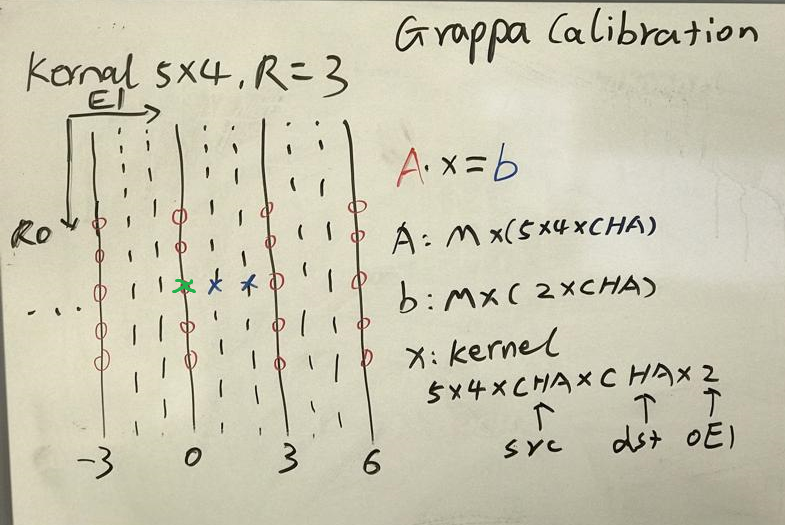 Grappa Calibration
Kernal 5x4, R=3
E1
RO
...
-3 0 3 6
A· x = b
A: M x(5x4xCHA)
b: M x( 2xCHA)
x: kernel
5x4xCHAxCHAx2
src dst oE1